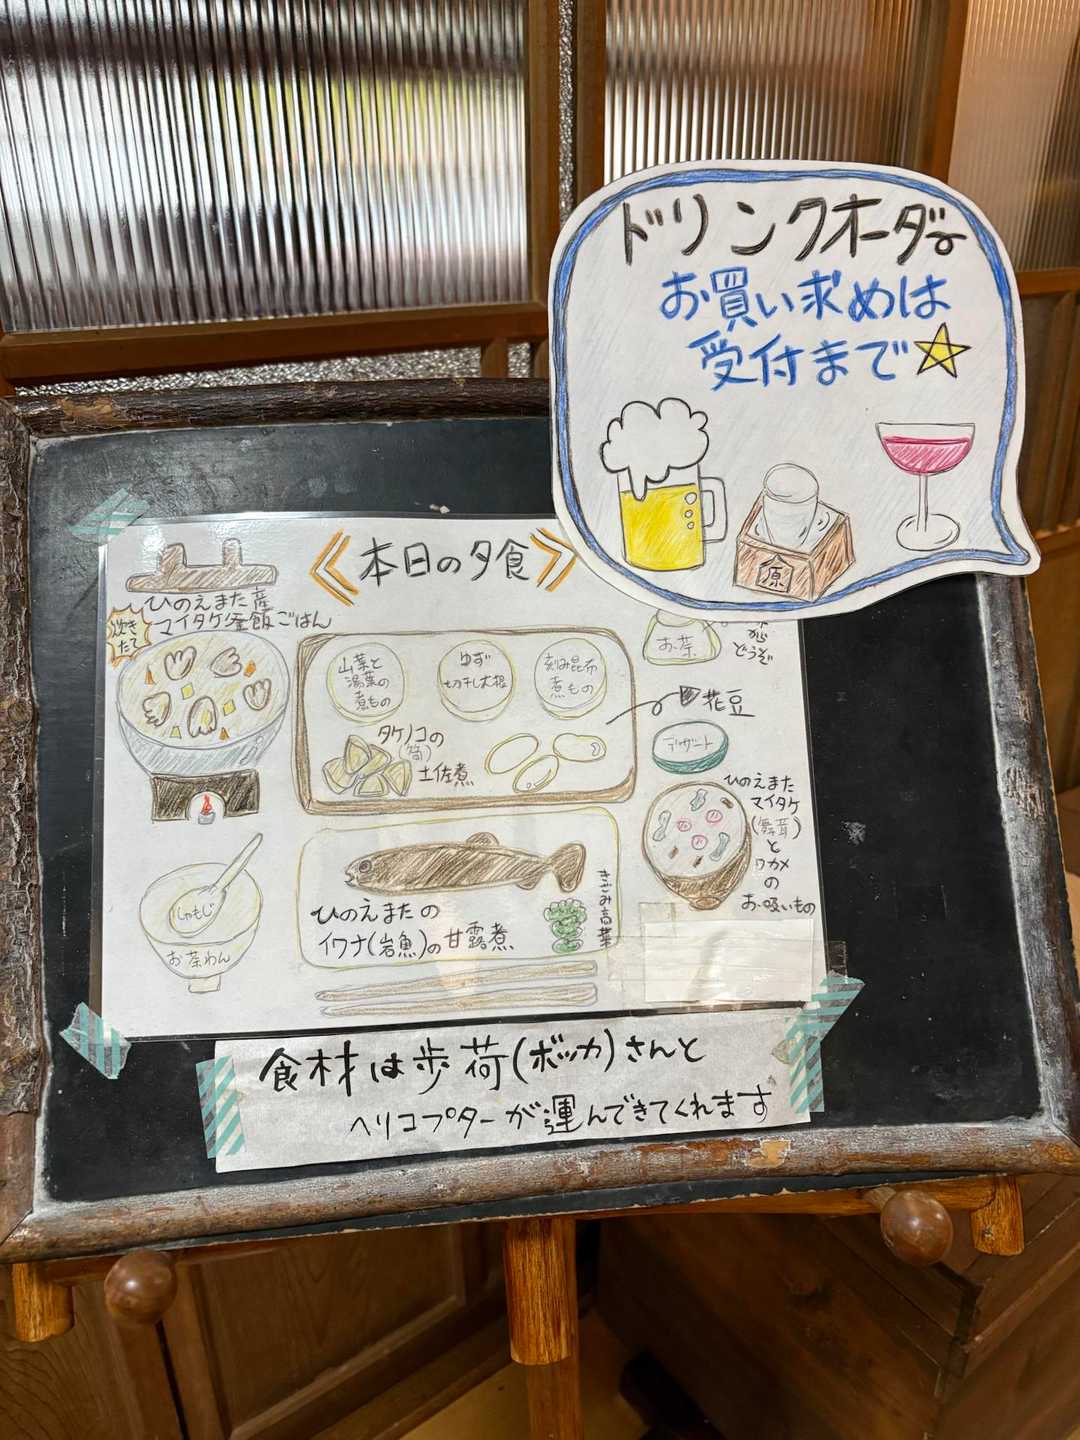 ドリンクオーダー
お買い求めは
受付まで
原
本日の夕食
ひのえまた産
マイタケ釜飯ごはん
炊き
たて
山菜と
湯葉の
煮もの
ゆず
切干し大根
刻み昆布
煮もの
タケノコの
(筍)
土佐煮
お茶
どうぞ
花豆
デザート
ひのえまた
マイタケ
(舞茸)
と
ワカメ
の
お吸いもの
しゃもじ
お茶わん
ひのえまたの
イワナ(岩魚)の甘露煮
きざみ高菜
食材は歩荷(ボッカ)さんと
ヘリコプターが運んできてくれます